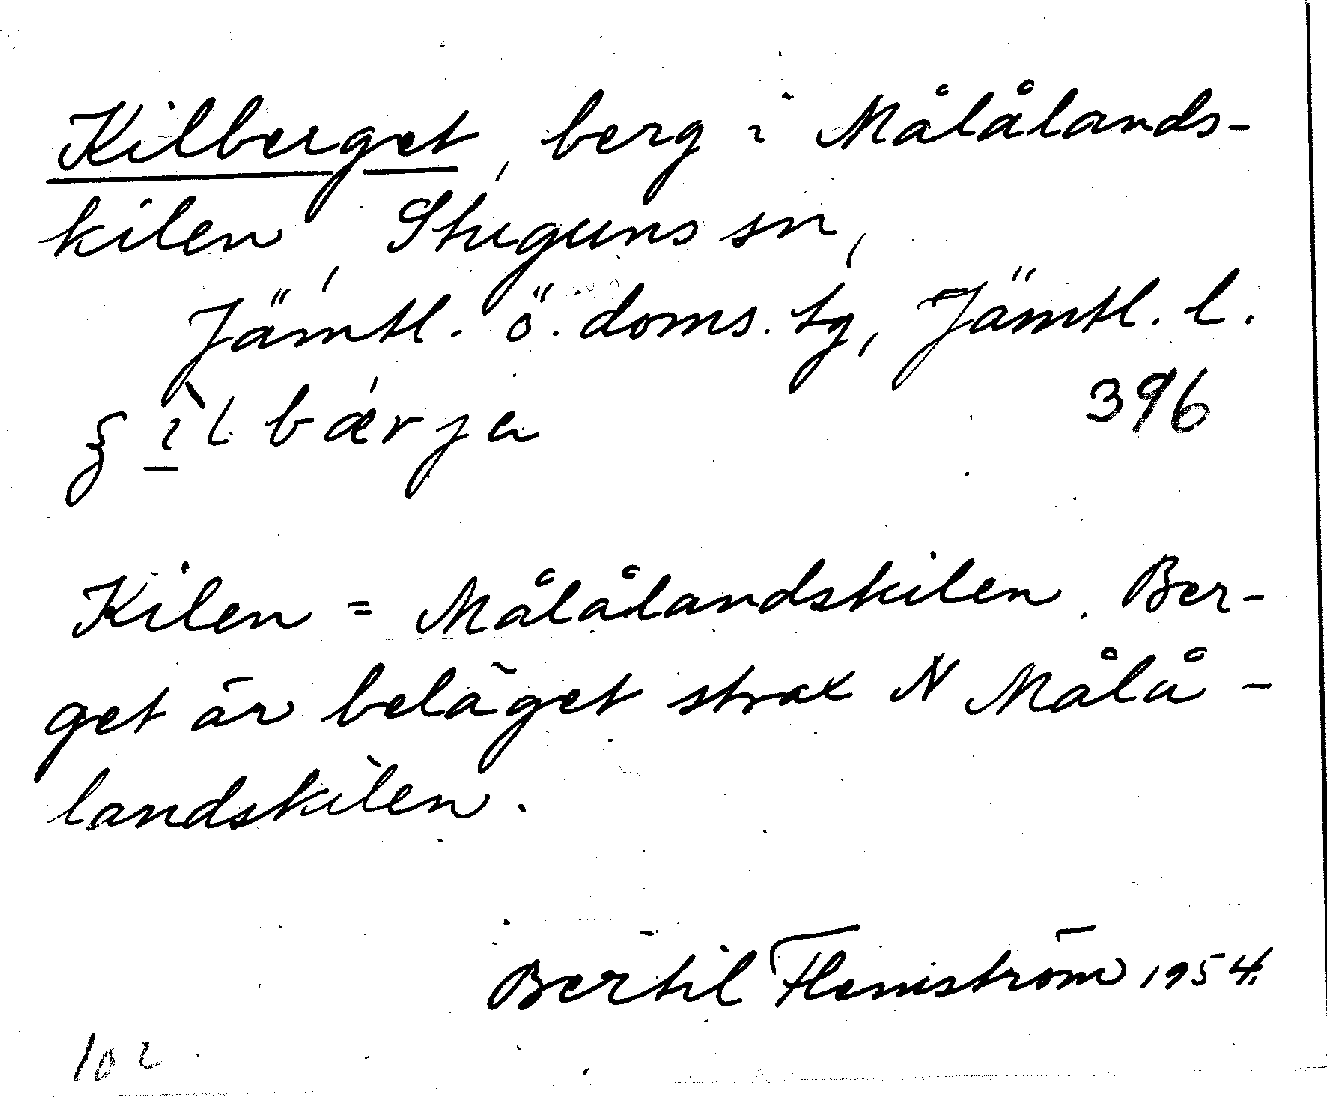 Kilberget, berg i Målålands-
kilen, Stuguns sn,
Jämtl. ö. doms. tg, Jämtl. l.
ʒìlbæŕja 396
Kilen = Målålandskilen. Ber-
get är beläget strax N Målå-
landskilen.
Bertil Flemström 1954.
102